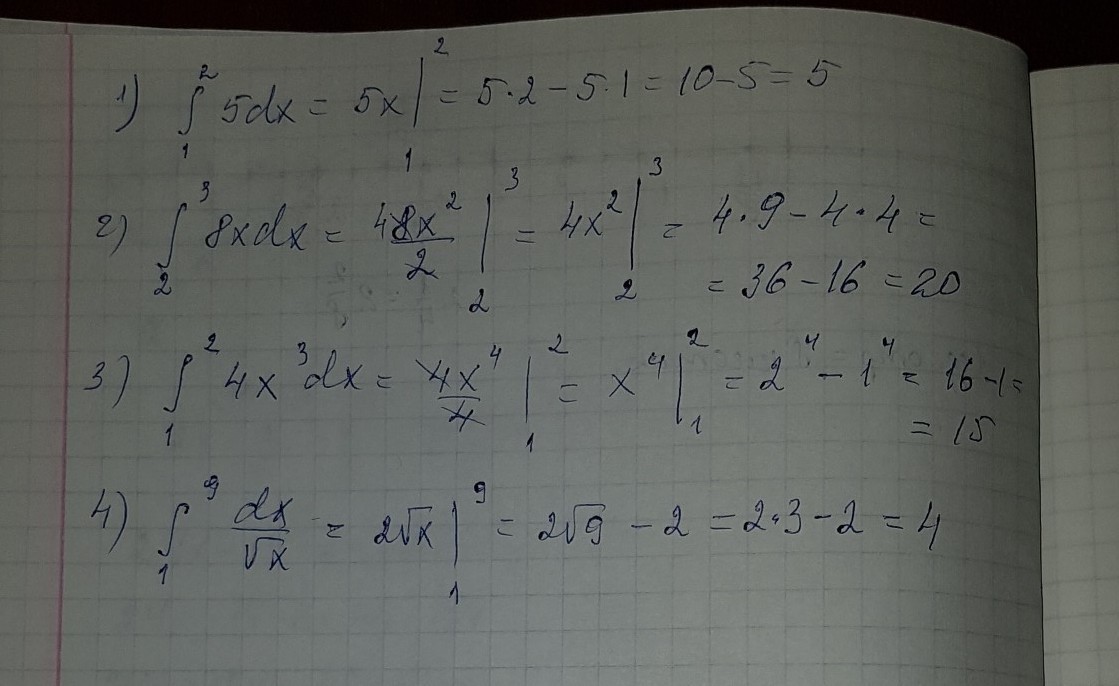 1) ∫₁² 5dx = 5x |₁² = 5·2 − 5·1 = 10 − 5 = 5
2) ∫₂³ 8xdx = 4 8x²/2 |₂³ = 4x² |₂³ = 4·9 − 4·4 =
= 36 − 16 = 20
3) ∫₁² 4x³dx = 4x⁴/4 |₁² = x⁴ |₁² = 2⁴ − 1⁴ = 16 − 1 =
= 15
4) ∫₁⁹ dx/√x = 2√x |₁⁹ = 2√9 − 2 = 2·3 − 2 = 4